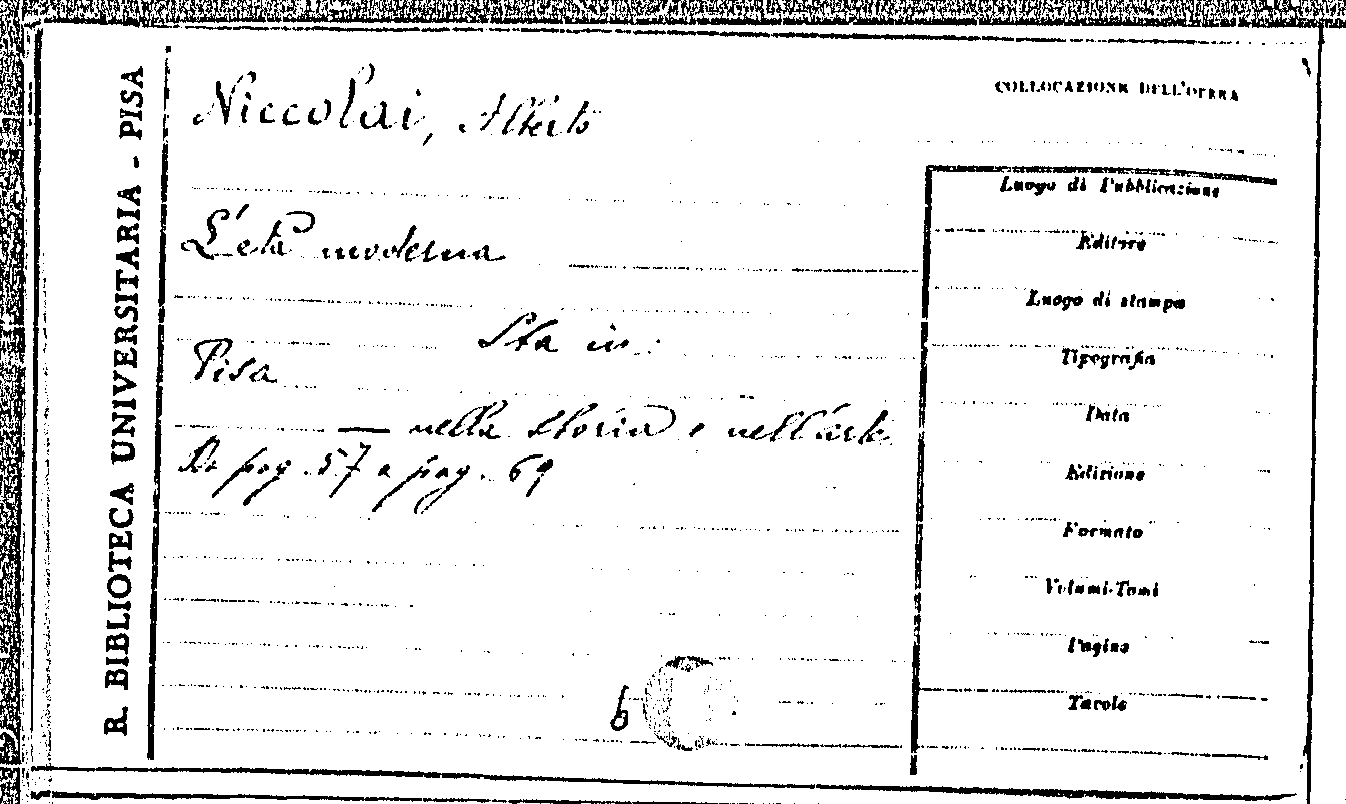 R. BIBLIOTECA UNIVERSITARIA - PISA
Niccolai, Alberto
COLLOCAZIONE DELL'OPERA
L'età moderna
Sta in:
Pisa
— nella storia e nell'arte
Da pag. 57 a pag. 69
b
Luogo di Pubblicazione
Editore
Luogo di stampa
Tipografia
Data
Edizione
Formato
Volumi-Tomi
Pagine
Tavole